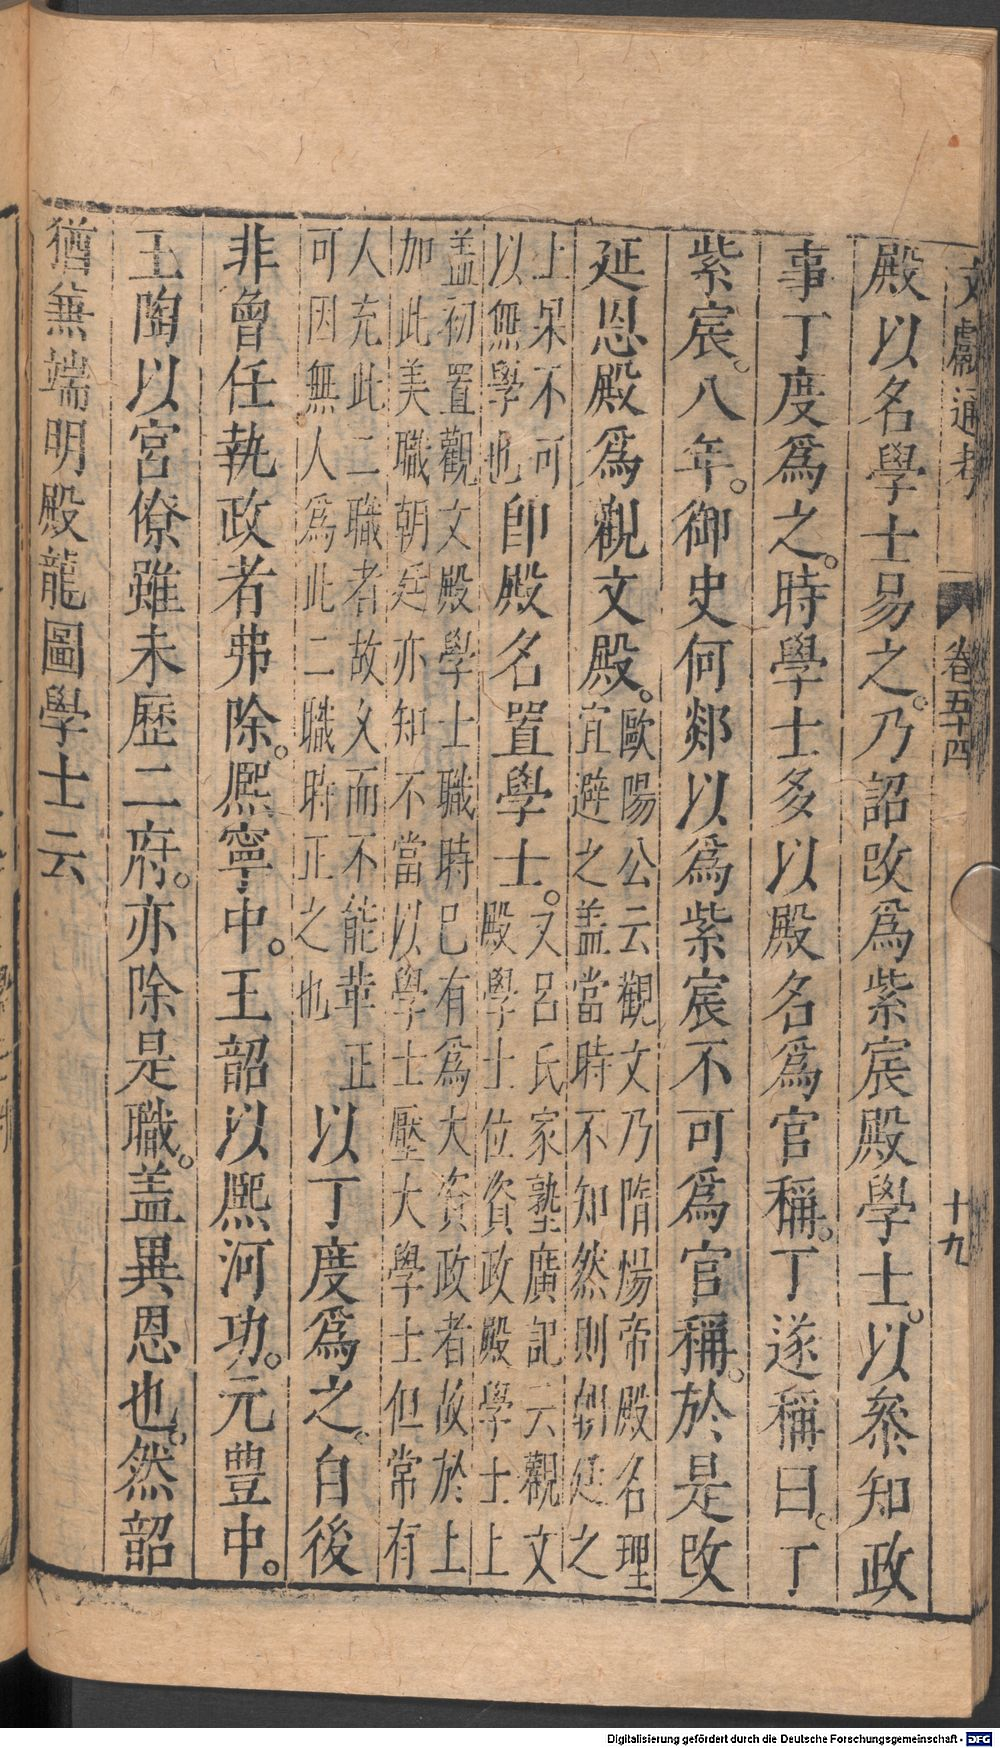 文獻通考 卷五十四 十九
殿以名學士易之。乃詔改爲紫宸殿學士。以叅知政
事丁度爲之。時學士多以殿名爲官稱。丁遂稱曰。丁
紫宸。八年。御史何郯以爲紫宸不可爲官稱。於是改
延恩殿爲觀文殿。
歐陽公云觀文乃隋煬帝殿名理
宜避之盖當時不知然則朝廷之
上杲不可
以無學也
卽殿名置學士。
又呂氏家塾廣記云觀文
殿學士位資政殿學士上
盖初置觀文殿學士職時已有爲大資政者故於上
加此美職朝廷亦知不當以學士壓大學士但常有
人充此二職者故乆而不能革正
可因無人爲此二職時正之也
以丁度爲之。自後
非曾任執政者弗除。熈寧中。王韶以熈河功。元豊中。
王陶以宮僚雖未歷二府。亦除是職。盖異恩也。然韶
猶兼端明殿龍圖學士云
Digitalisierung gefördert durch die Deutsche Forschungsgemeinschaft - DFG